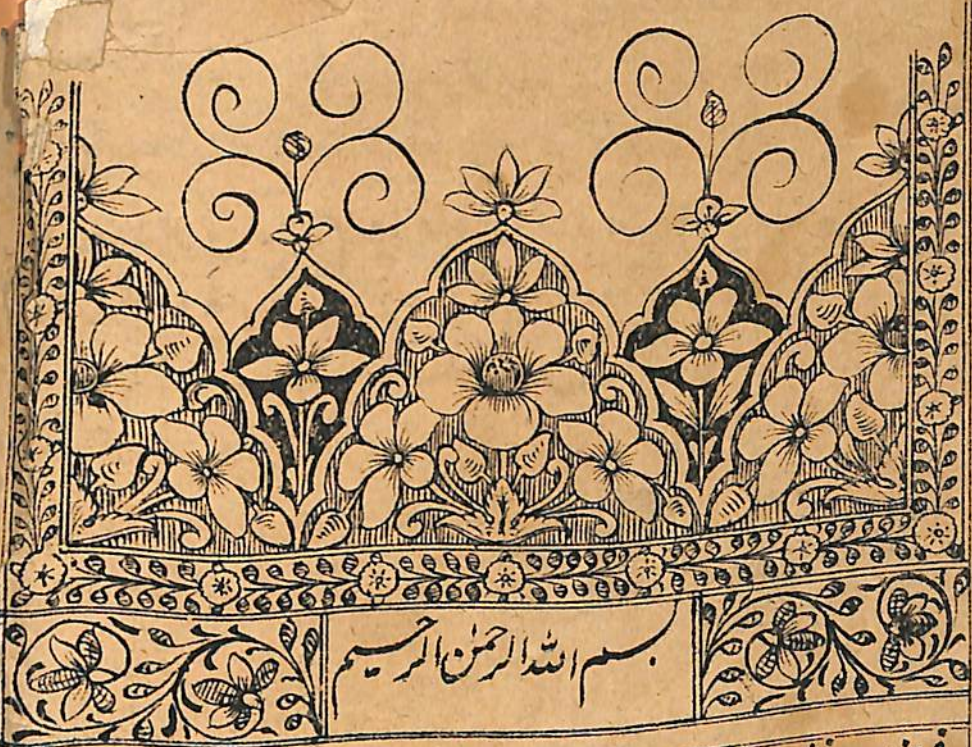 بسم الله الرحمٰن الرحيم